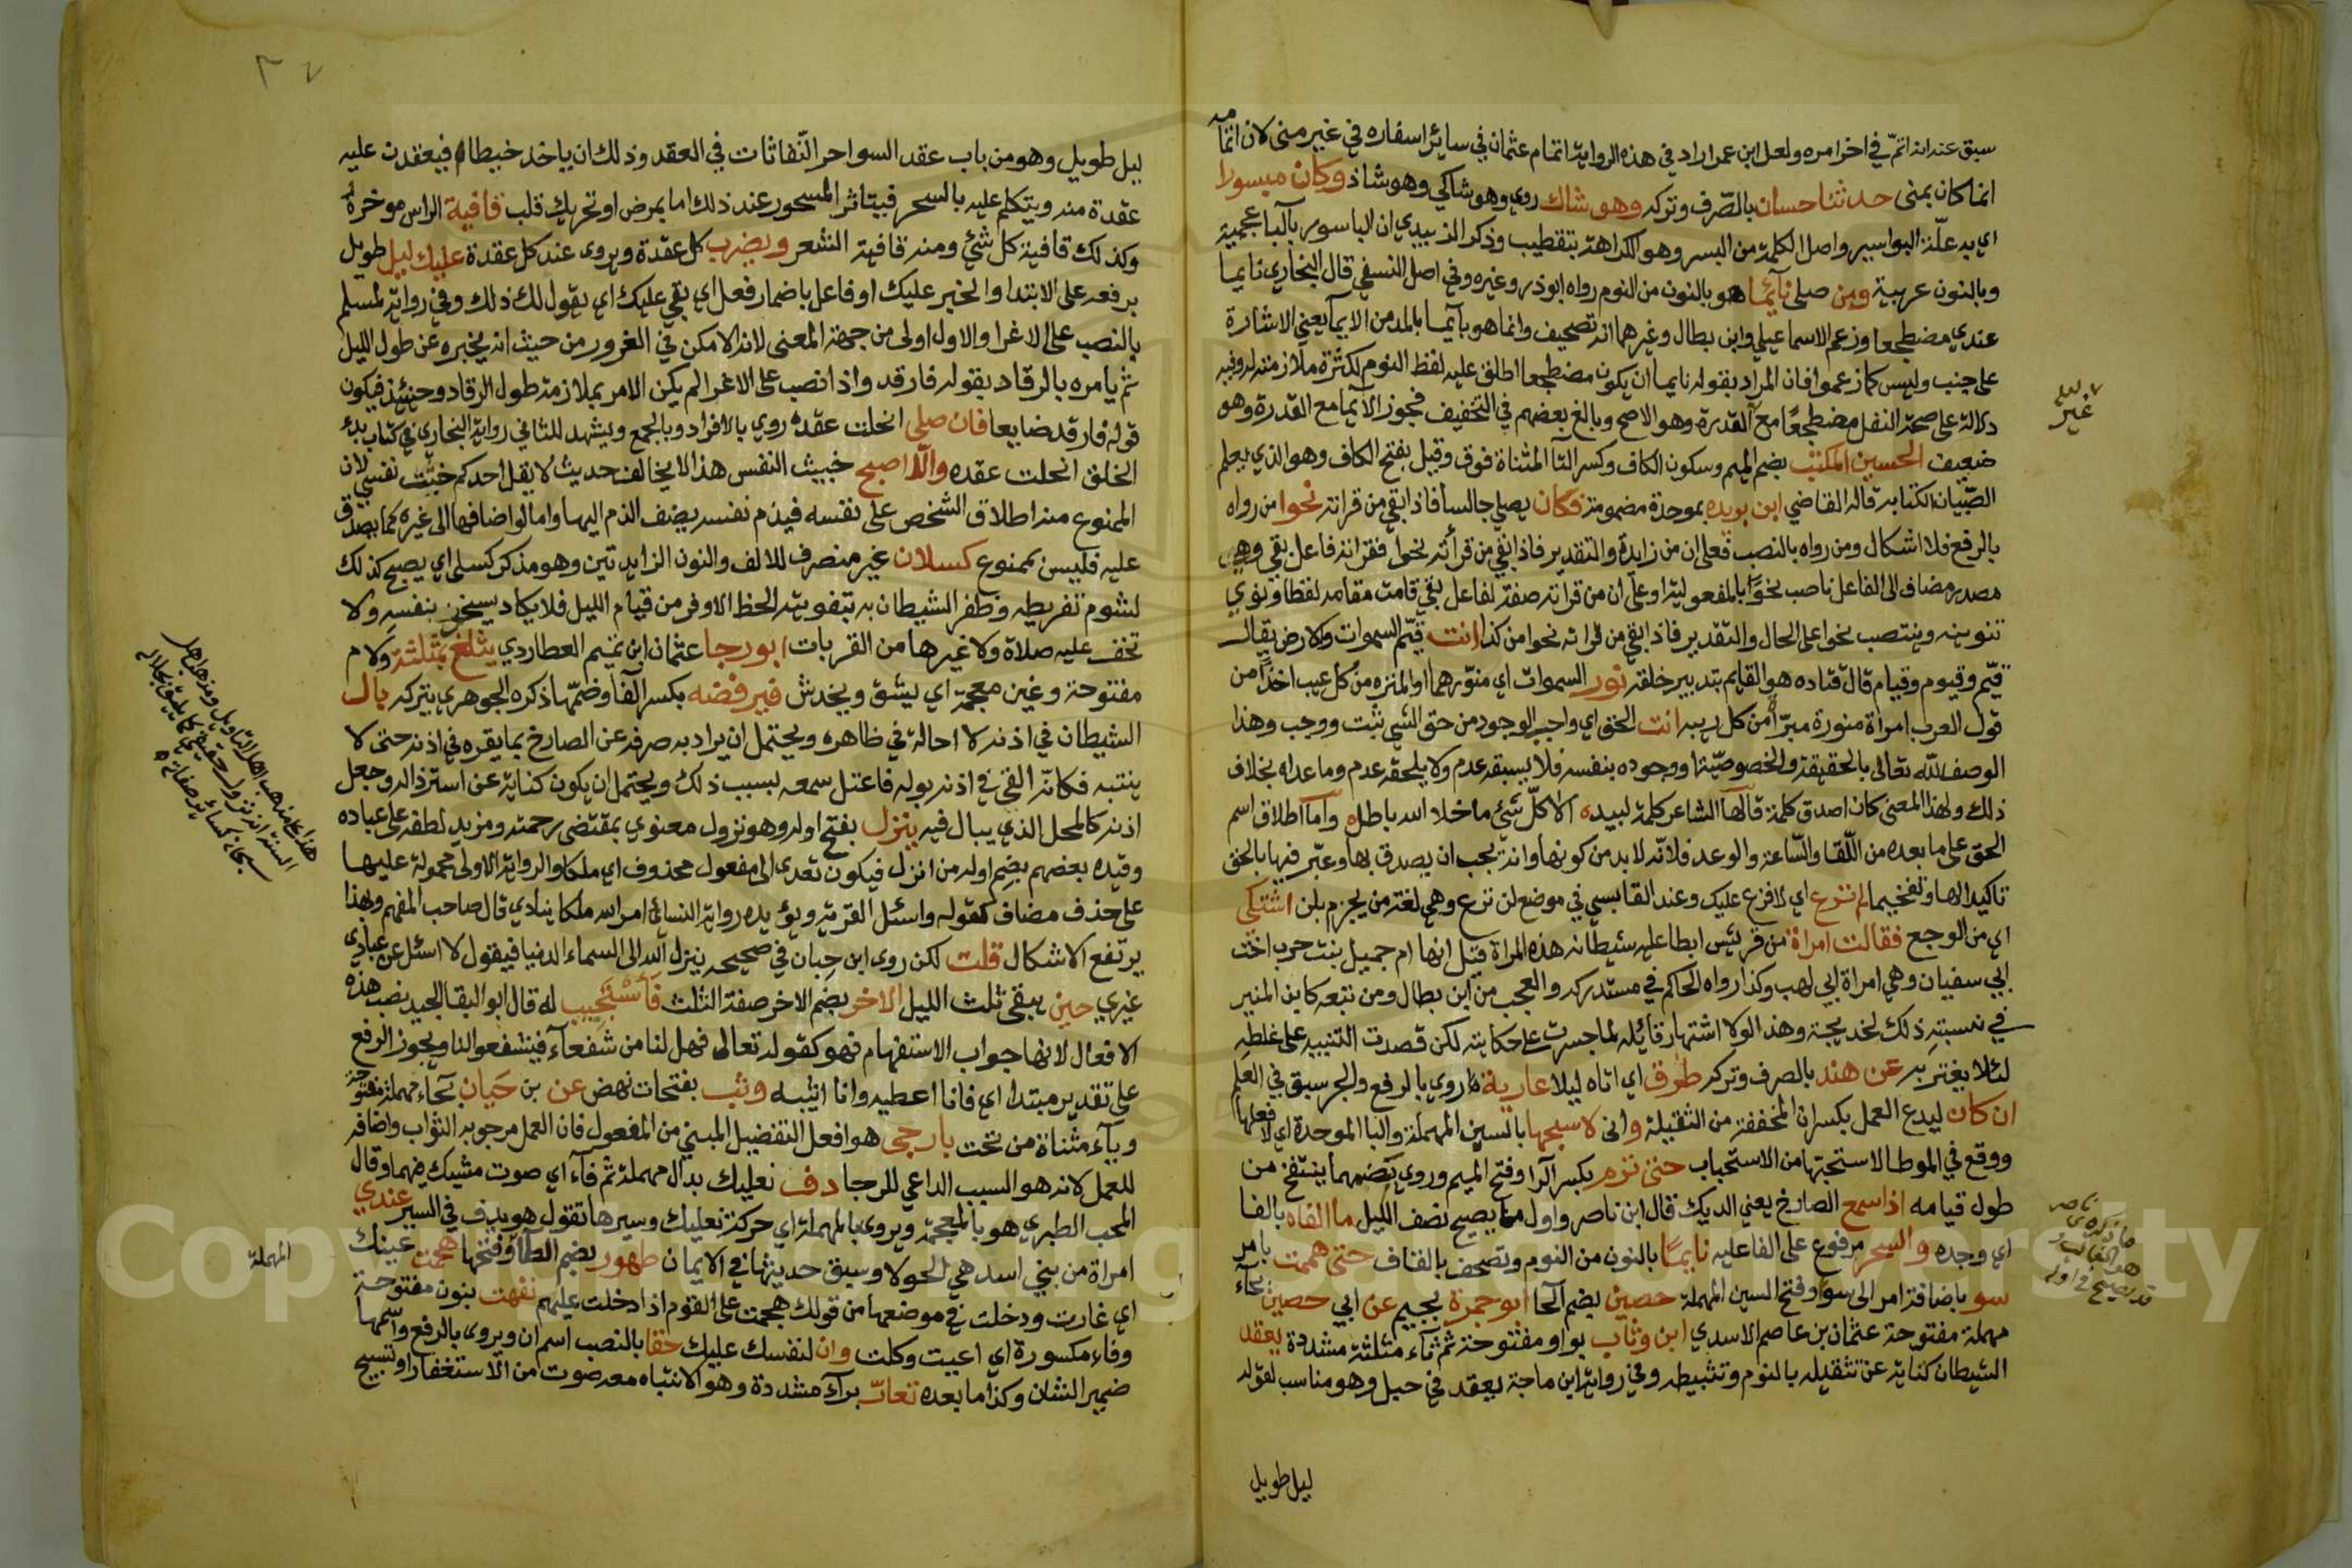 سبق عنه انه اتمّ في اخر امره ولعل ابن عمر اراد في هذه الرواية اتمام عثمان في سائر اسفاره في غير منى لان اتمامه
انما كان بمنى حدثنا حسان بالصّرف وتركه وهو شاك روي وهو شاكي وهو شاذ وكان ميسورا
اي به علّة البواسير واصل الكلمة من البسر وهو الكراهة بتقطيب وذكر الزبيدي ان الباسور بالبا عجمية
وبالنون عربية ومن صلى نائما هو بالنون من النوم رواه ابوذر وغيره وفي اصل النسفي قال البخاري نايما
عندي مضطجعا وزعم الاسماعيلي وابن بطال وغيرهما انه تصحيف وانما هو بآيما بالمد من الايمآ يعني الاشارة
على جنب وليس كما زعموا فان المراد بقوله نايما ان يكون مضطجعا اطلق عليه لفظ النوم لكثرة ملازمته له وفيه
دلالة على صحة النفل مضطجعًا مع القدرة وهو الاصح وبالغ بعضهم في التخفيف فجوز الايما مع القدرة وهو
ضعيف الحسين المكتب بضم الميم وسكون الكاف وكسر التا المثناة فوق وقيل بفتح الكاف وهو الذي يعلم
الصّبيان الكتابة قاله القاضي ابن بريده بموحدة مضمومة فكان يصلي جالسا فاذا بقي من قراته نحوا من رواه
بالرفع فلا اشكال ومن رواه بالنصب فعلى ان من زايدة والتقدير فاذا بقي من قرأته نحوا فقراته فاعل بقي وهي
مصدر مضاف الى الفاعل ناصب نحوًا بالمفعولية او على ان من قراته صفة لفاعل بقي قامت مقامه لفظا ونوي
ثبوته وينتصب نحوا على الحال والتقدير فاذا بقي من قراته نحوا من كذا انت قيّم السموات والارض يقال
قيّم وقيوم وقيام قال قتاده هو القايم بتدبير خلقه نور السموات اي منوّرهما او المنزه من كل عيب اخذًا من
قول العرب امراة منورة مبرّاة من كل ريبه انت الحق اي واجب الوجود من حق الشي ثبت ووجب وهذا
الوصف لله تعالى بالحقيقة والخصوصيّة اذ وجوده بنفسه فلا يسبقه عدم ولا يلحقه عدم وما عداه بخلاف
ذلك ولهذا المعنى كان اصدق كلمة قالها الشاعر كلمة لبيد الا كلّ شئ ما خلا الله باطل واما اطلاق اسم
الحق على ما بعده من اللّقا والسّاعة والوعد فلانّه لا بد من كونها وانه يجب ان يصدق بها وعبّر فيها بالحق
تاكيدا لها وتفخيما لم تزع اي لا فزع عليك وعند القابسي في موضع لن ترع وهي لغة من يجزم بلن اشتكى
اي من الوجع فقالت امراة من قريش ابطا عليه شيطانه هذه المراة قيل انها ام جميل بنت حرب اخت
ابي سفيان وهي امراة ابي لهب وكذا رواه الحاكم في مستدركه والعجب من ابن بطال ومن تبعه كابن المنير
في نسبته ذلك لخديجة وهذا لولا اشتهار قائله لما جسرت على حكايته لكن قصدت التنبيه على غلطه
لئلا يغتر به عن هند بالصرف وتركه طرق اي اتاه ليلا عارية روي بالرفع والجر سبق في العلم
ان كان ليدع العمل بكسر ان المخففة من الثقيلة وانى لاسبحها بالسين المهملة والبا الموحدة اي لافعلها
ووقع في الموطا لاستحبّها من الاستحباب حتى ترم بكسر الرا وفتح الميم وروي بضمهما ينتفخ من
طول قيامه اذا سمع الصارخ يعني الديك قال ابن ناصر واول ما يصيح نصف الليل ما الفاه بالفا
اي وجده والسحر مرفوع على الفاعليه نايمًا بالنون من النوم وتصحف بالقاف حتى هممت بامر
سو باضافة امر الى سوا وفتح السين المهملة حصين بضم الحا ابو جمرة بجيم عن ابي حصين بحآء
مهملة مفتوحة عثمان بن عاصم الاسدي ابن وثاب بواو مفتوحة ثم ثاء مثلثة مشددة يعقد
الشيطان كناية عن تثقيله بالنوم وتثبيطه وفي رواية ابن ماجة يعقد في حبل وهو مناسب لقوله
ليل طويل
غير
ناصر
ما ذكره
هو الغالب
قد يصيح في اوله
ليل طويل وهو من باب عقد السواحر النّفاثات في العقد وذلك ان ياخذ خيطا فيعقدن عليه
عقدة منه ويتكلم عليه بالسحر فيتاثر المسحور عند ذلك اما بمرض او تحريك قلب قافية الراس موخره
وكذلك قافية كل شئ ومنه قافية الشعر ويضرب كل عقدة ويروى عند كل عقدة عليك ليل طويل
برفعه على الابتدا والخبر عليك او فاعل باضمار فعل اي بقي عليك اي يقول لك ذلك وفي رواية لمسلم
بالنصب على الاغرا والاول اولى من جهة المعنى لانه الامكن في الغرور من حيث انه يخبره عن طول الليل
ثم يامره بالرقاد بقوله فارقد واذا نصب على الاغرا لم يكن الامر بملازمة طول الرقاد وحينئذ فيكون
قوله فارقد ضايعا فان صلى انحلت عقده روي بالافراد وبالجمع ويشهد للثاني رواية البخاري في كتاب بدء
الخلق انحلت عقده والّا اصبح خبيث النفس هذا لا يخالف حديث لا يقل احدكم خبثت نفسي لان
الممنوع منه اطلاق الشخص على نفسه فيذم نفسه يضف الذم اليها واما لو اضافها الى غيره كما يصدق
عليه فليس بممنوع كسلان غير منصرف للالف والنون الزايدتين وهو مذكر كسلى اي يصبح كذلك
لشوم تفريطه وظفر الشيطان به بتفويته الحظ الاوفر من قيام الليل فلا يكاد بنفسه ولا
تخف عليه صلاة ولا غيرها من القربات ابو رجا عثمان ابن تميم العطاردي يثلغ بمثلثة ولام
مفتوحة وغين معجمة اي يشق ويخدش فيرفضه بكسر الفا وضمّها ذكره الجوهري يتركه بال
الشيطان في اذنه لا احالة في ظاهره ويحتمل ان يراد به صرفه عن الصارخ بما يقره في اذنه حتى لا
ينتبه فكانه القى في اذنه بوله فاعتل سمعه لسبب ذلك ويحتمل ان يكون كناية عن استرذاله وجعل
اذنه كالمحل الذي يبال فيه ينزل بفتح اوله وهو نزول معنوي بمقتضى رحمته ومزيد لطفه على عباده
وقيده بعضهم بضم اوله من انزل فيكون تعدى الى مفعول محذوف اي ملكا والرواية الاولى محمولة عليها
على حذف مضاف كقوله واسئل القرية ويؤيده رواية النسائي امر الله ملكا ينادي قال صاحب المفهم وبهذا
يرتفع الاشكال قلت لكن روى ابن حبان في صحيحه ينزل الله الى السماء الدنيا فيقول لا اسئل عن عبادي
غيري حين يبقى ثلث الليل الاخر بضم الاخر صفة الثلث فأستجيب له قال ابو البقا الجيد نصب هذه
الافعال لانها جواب الاستفهام فهو كقوله تعالى فهل لنا من شفعآء فيشفعوا لنا ويجوز الرفع
على تقدير مبتدا اي فانا اعطيه وانا اثيبه وثب بفتحات نهض عن بن حَيان بحآء مهملة مفتوحة
وبآء مثناة من تحت بارجى هو افعل التفضيل المبني من المفعول فان العمل مرجو به الثواب واضافه
للعمل لانه هو السبب الداعي للرجا دف نعليك بدال مهملة ثم فآء اي صوت مشيك فيهما وقال
المحب الطبري هو بالمعجمة ويروى بالمهملة اي حركة نعليك وسيرها تقول هو يدف في السير عندي
امراة من بني اسد هي الحولا وسبق حديثها في الايمان طهور بضم الطآ وفتحها هجمت عينك
اي غارت ودخلت في موضعها من قولك هجمت على القوم اذا دخلت عليهم نفهت بنون مفتوحة
وفاء مكسورة اي اعيت وكلت وان لنفسك عليك حقا بالنصب اسم ان ويروى بالرفع واسمها
ضمير الشان وكذا ما بعده تعارّ براء مشددة وهو الانتباه معه صوت من الاستغفار او تسبيح
هذا على مذهب اهل التاويل ومذهب اهل
السنة انه نزول حقيقي كما يليق بجلاله
سبحانه كسائر صفاته
المهملة
Copyright © King Saud University